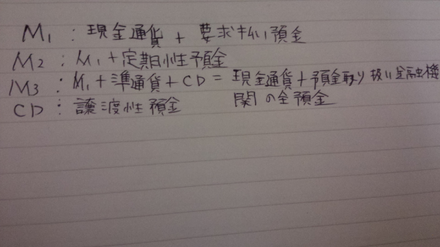 M₁ : 現金通貨 + 要求払い預金
M₂ : M₁ + 定期性預金
M₃ : M₁ + 準通貨 + CD = 現金通貨 + 預金取り扱い金融機
CD : 譲渡性預金 関の全預金